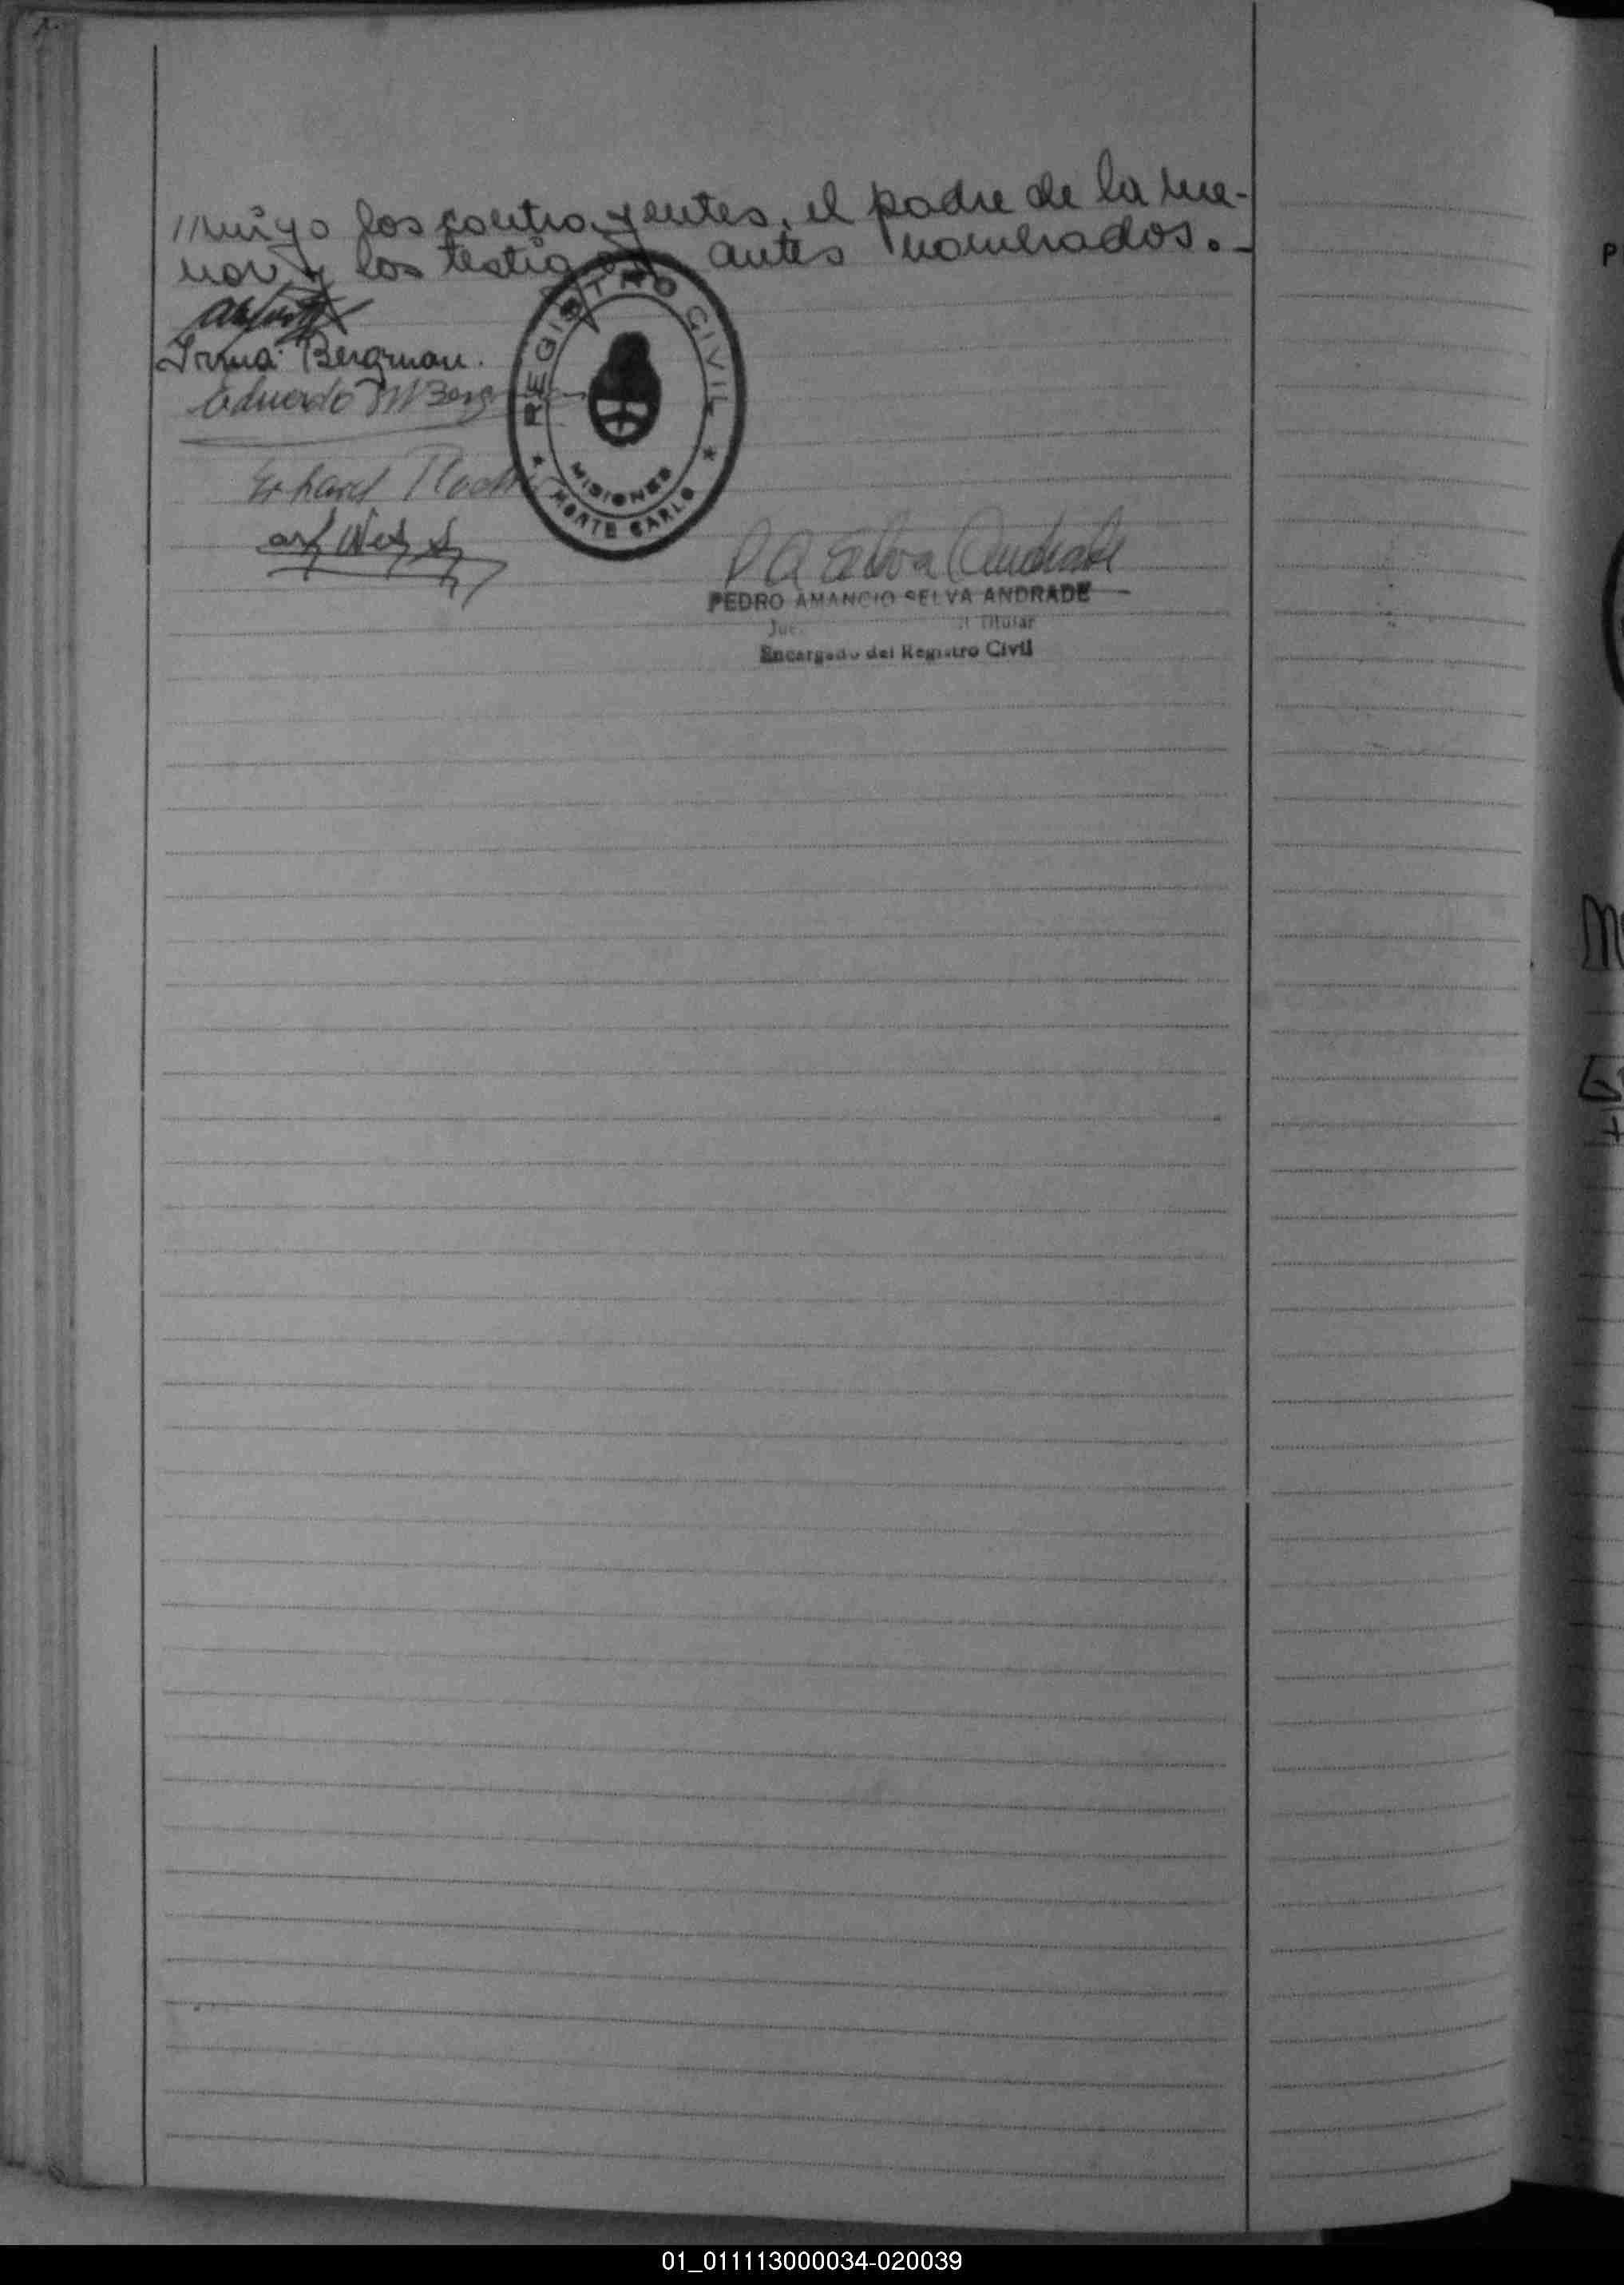 migo los contrayentes, el padre de la me-
nor y los testigos antes nombrados.-
Irma Bergman.
Eduardo M Berg
Erhard
REGISTRO CIVIL
MISIONES
MONTE CARLO
P A Selva Andrade
PEDRO AMANCIO SELVA ANDRADE
Jue Titular
Encargado del Registro Civil
P
M
01_011113000034-020039